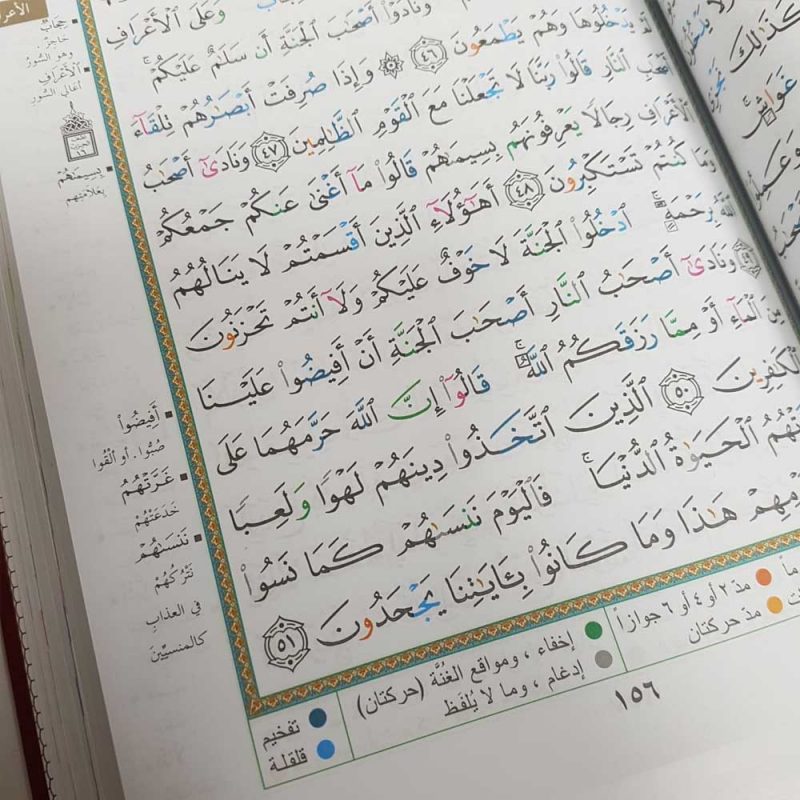 الأعر
وَنَادَوْا۟ أَصْحَـٰبَ ٱلْجَنَّةِ أَن سَلَـٰمٌ عَلَيْكُمْ ۚ
وَعَلَى ٱلْأَعْرَافِ
يَدْخُلُوهَا وَهُمْ يَطْمَعُونَ ٤٦ ۞ وَإِذَا صُرِفَتْ أَبْصَـٰرُهُمْ تِلْقَآءَ
أَصْحَـٰبِ ٱلنَّارِ قَالُوا۟ رَبَّنَا لَا تَجْعَلْنَا مَعَ ٱلْقَوْمِ ٱلظَّـٰلِمِينَ ٤٧ وَنَادَىٰٓ أَصْحَـٰبُ
ٱلْأَعْرَافِ رِجَالًا يَعْرِفُونَهُم بِسِيمَىٰهُمْ قَالُوا۟ مَآ أَغْنَىٰ عَنكُمْ جَمْعُكُمْ
وَمَا كُنتُمْ تَسْتَكْبِرُونَ ٤٨ أَهَـٰٓؤُلَآءِ ٱلَّذِينَ أَقْسَمْتُمْ لَا يَنَالُهُمُ
ٱللَّهُ بِرَحْمَةٍ ۚ ٱدْخُلُوا۟ ٱلْجَنَّةَ لَا خَوْفٌ عَلَيْكُمْ وَلَآ أَنتُمْ تَحْزَنُونَ
٤٩ وَنَادَىٰٓ أَصْحَـٰبُ ٱلنَّارِ أَصْحَـٰبَ ٱلْجَنَّةِ أَنْ أَفِيضُوا۟ عَلَيْنَا
مِنَ ٱلْمَآءِ أَوْ مِمَّا رَزَقَكُمُ ٱللَّهُ ۚ قَالُوٓا۟ إِنَّ ٱللَّهَ حَرَّمَهُمَا عَلَى
ٱلْكَـٰفِرِينَ ٥٠ ٱلَّذِينَ ٱتَّخَذُوا۟ دِينَهُمْ لَهْوًا وَلَعِبًا
ٱلْحَيَوٰةُ ٱلدُّنْيَا ۚ فَٱلْيَوْمَ نَنسَىٰهُمْ كَمَا نَسُوا۟
هَـٰذَا وَمَا كَانُوا۟ بِـَٔايَـٰتِنَا يَجْحَدُونَ ٥١
حِجَابٌ
حاجز
وهو السُّور
الأعراف
أعالي السُّور
بسيماهم
بعلامتهم
أَفِيضُوا۟
صُبُّوا. أو ألقُوا
غَرَّتْهُمُ
خَدَعَتْهُمْ
نَنسَىٰهُمْ
نتركُهُمْ
في العذاب
كالمنسيّين
مدّ ٢ أو ٤ أو ٦ جوازاً
مدّ حركتان
إخفاء ، ومواقع الغُنَّة (حركتان)
إدغام ، وما لا يُلفَظ
تفخيم
قلقلة
١٥٦
كَذَٰلِكَ
غَوَاشٍ